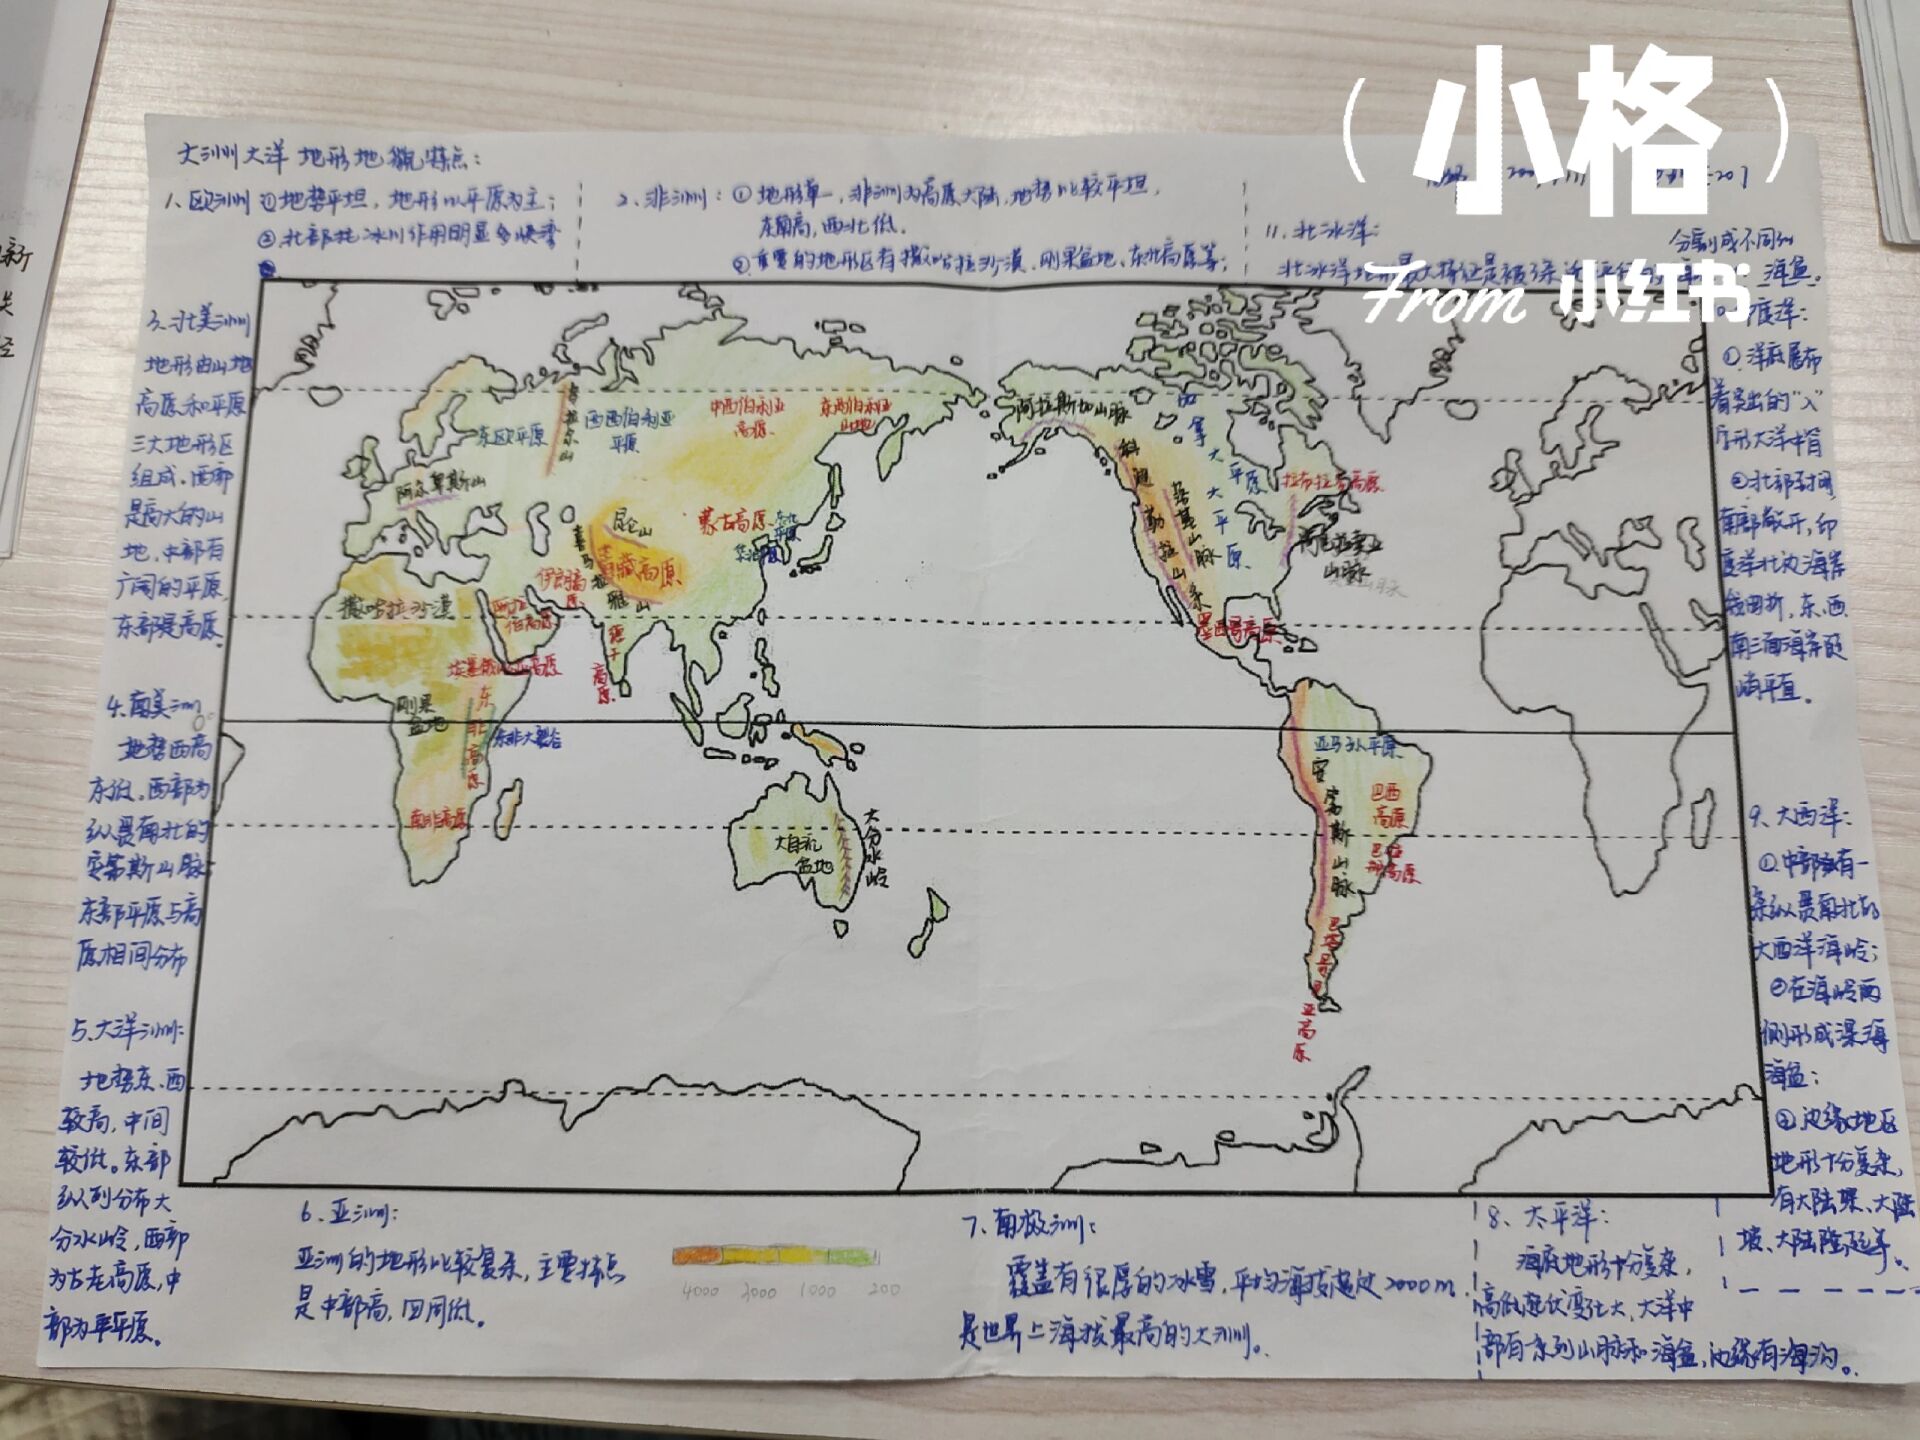 （小格）
From 小红书
大洲大洋地形地貌特点：
1、欧洲 ①地势平坦，地形以平原为主；
②北部
冰川作用明显多峡湾
2、非洲：①地形单一，非洲为高原大陆，地势比较平坦，
东南高，西北低。
②重要的地形区有撒哈拉沙漠、刚果盆地、东非高原等；
11、北冰洋：
分割成不同的
海盆。
3、北美洲
地形由山地
高原和平原
三大地形区
组成。西部
是高大的山
地，中部有
广阔的平原，
东部是高原。
4、南美洲
地势西高
东低。西部为
纵贯南北的
安第斯山脉；
东部平原与高
原相间分布
5、大洋洲：
地势东、西
较高，中间
较低。东部
纵列分布大
分水岭，西部
为古老高原，中
部为平原。
6、亚洲：
亚洲的地形比较复杂，主要特点
是中部高，四周低。
4000 2000 1000 200
7、南极洲：
覆盖有很厚的冰雪，平均海拔超过2000m，
是世界上海拔最高的大洲。
8、太平洋：
海底地形十分复杂，
高低起伏变化大，大洋中
部有系列山脉和海盆，边缘有海沟。
9、大西洋：
①中部有一
条纵贯南北的
大西洋海岭；
②在海岭两
侧形成深海
海盆；
③边缘地区
地形十分复杂，
有大陆架、大陆
坡、大陆隆起等。
度洋：
①洋底展布
着突出的“入”
字形大洋中脊
②北部封闭，
南部敞开，印
度洋北边海岸
线曲折，东、西、
南三面海岸
平直。
东欧平原
乌拉尔山
西西伯利亚
平原
中西伯利亚
高原
东西伯利亚
山地
阿尔卑斯山
昆仑山
蒙古高原
东北
平原
华北平原
青藏高原
喜马拉雅山
伊朗高原
阿拉伯高原
德干高原
撒哈拉沙漠
埃塞俄比亚高原
刚果
盆地
东非高原
东非大裂谷
南非高原
大自流
盆地
大分水岭
阿拉斯加山脉
科迪勒拉山系
落基山脉
加拿大平原
大平原
拉布拉多高原
阿巴拉契亚
山脉
墨西哥高原
亚马孙平原
安第斯山脉
巴西
高原
巴塔哥尼亚高原
0°